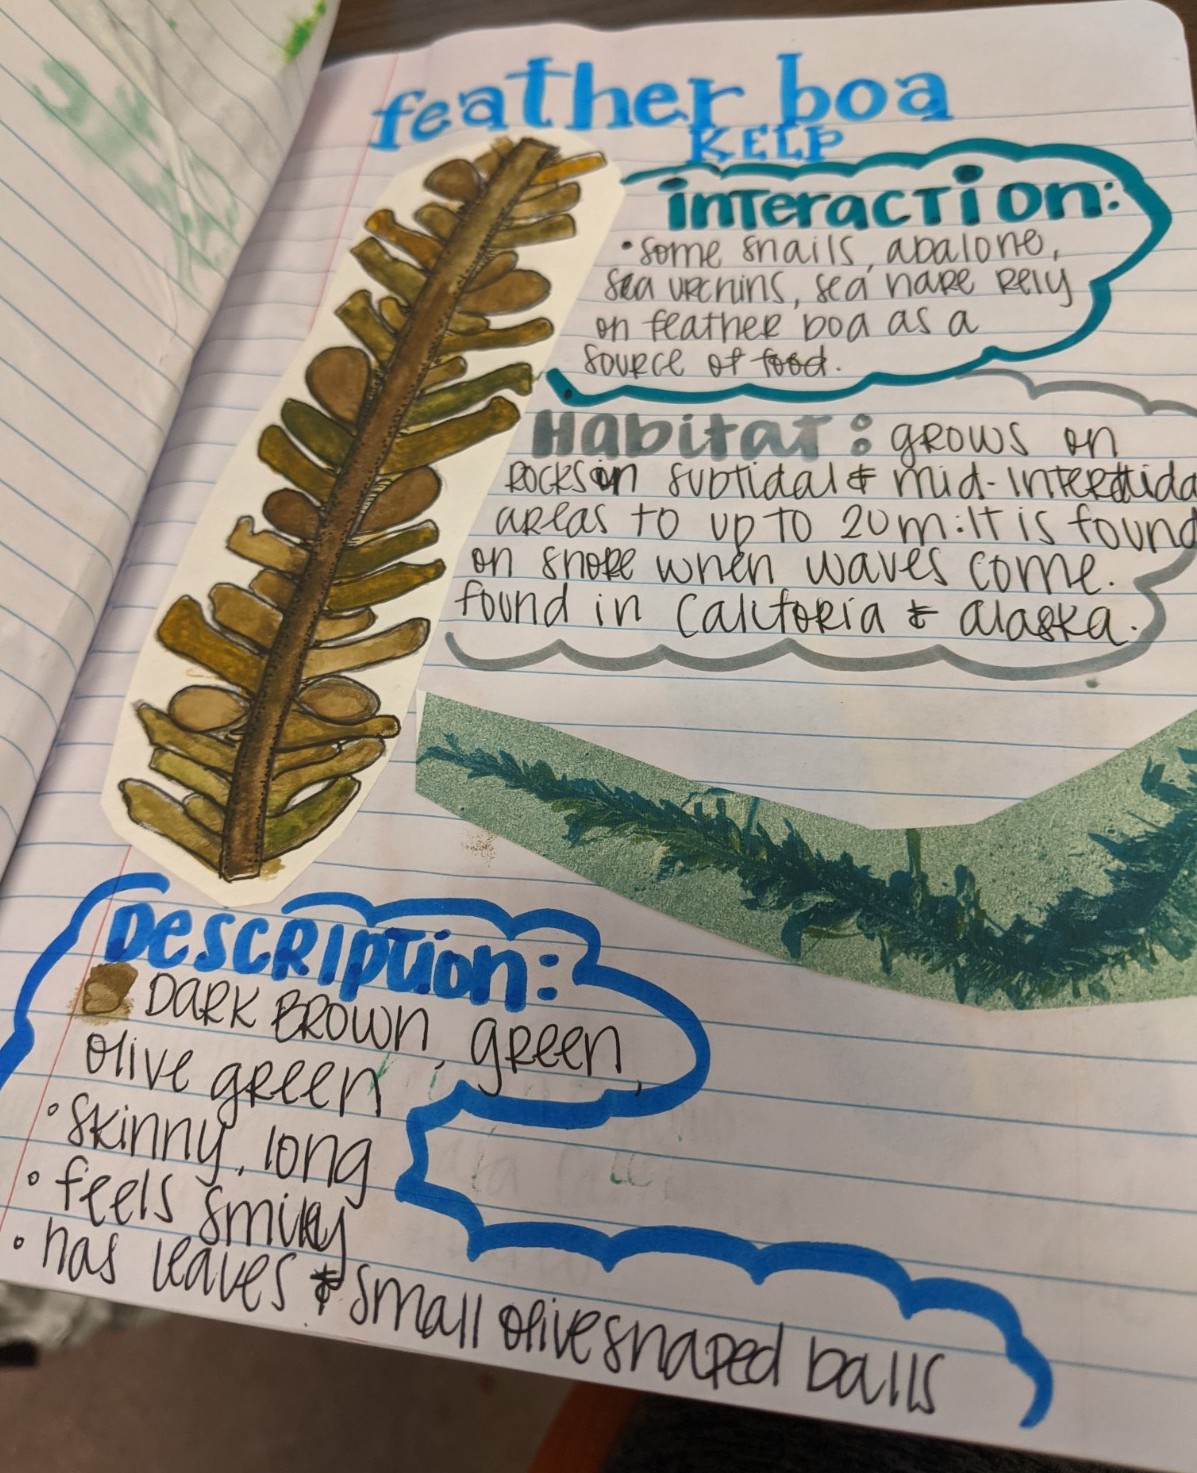 feather boa
KELP
interaction:
• some snails, abalone,
sea urchins, sea hare rely
on feather boa as a
source of food.
Habitat: grows on
rocks in subtidal & mid-intertida
areas to up to 20m. It is found
on shore when waves come.
found in Califoria & alaska.
Description:
DARK BROWN, green,
olive green
• skinny, long
• feels smiley
• has leaves & small olive shaped balls